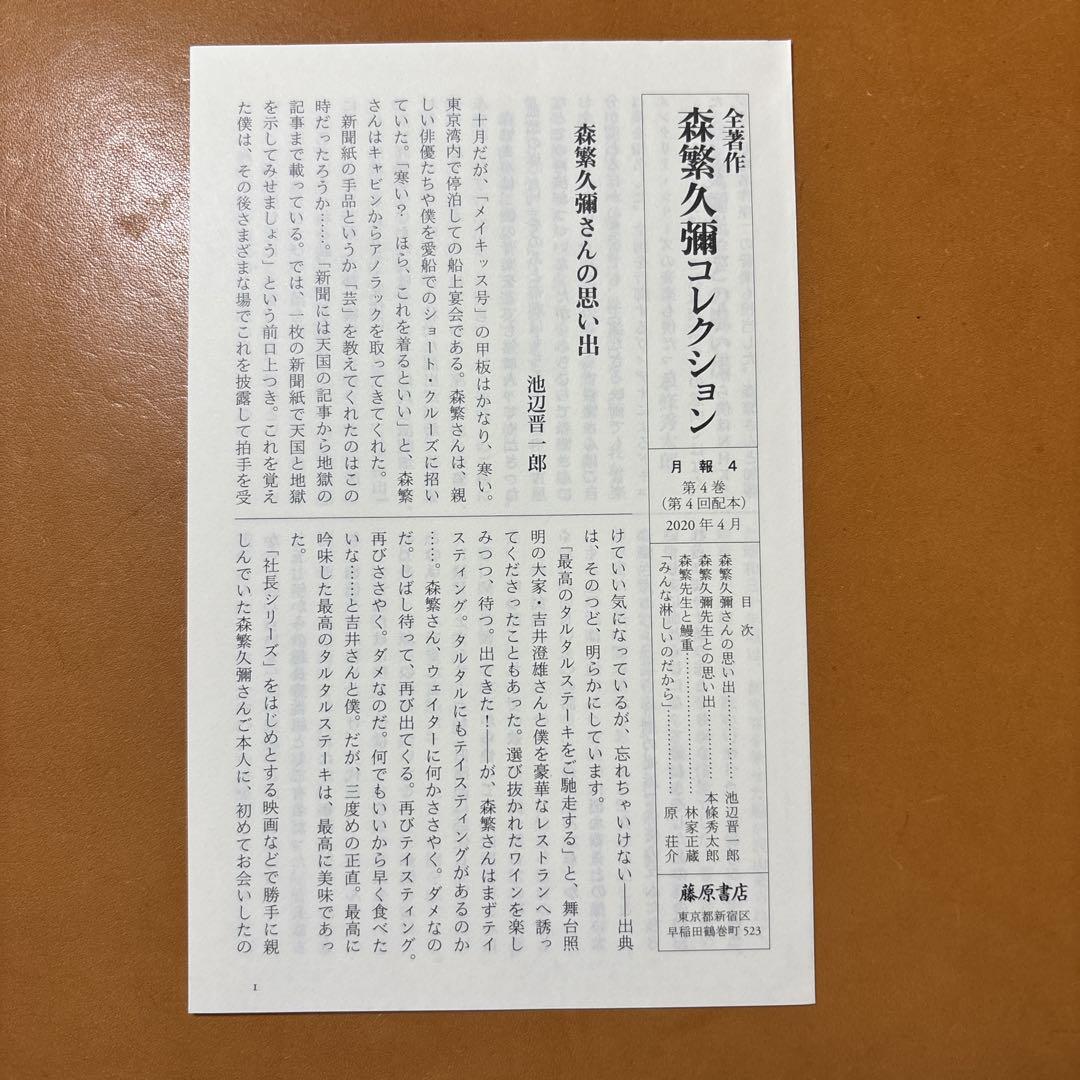 全著作
森繁久彌コレクション
月報4
第4巻
(第4回配本)
2020年4月
目次
森繁久彌さんの思い出…………… 池辺晋一郎
森繁久彌先生との思い出………… 本條秀太郎
森繁先生と鰻重…………………… 林家正蔵
「みんな淋しいのだから」………… 原 荘介
藤原書店
東京都新宿区
早稲田鶴巻町523
森繁久彌さんの思い出
池辺晋一郎
十月だが、「メイキッス号」の甲板はかなり、寒い。
東京湾内で停泊しての船上宴会である。森繁さんは、親
しい俳優たちや僕を愛船でのショート・クルーズに招い
ていた。「寒い? ほら、これを着るといい」と、森繁
さんはキャビンからアノラックを取ってきてくれた。
新聞紙の手品というか「芸」を教えてくれたのはこの
時だったろうか……。「新聞には天国の記事から地獄の
記事まで載っている。では、一枚の新聞紙で天国と地獄
を示してみせましょう」という前口上つき。これを覚え
た僕は、その後さまざまな場でこれを披露して拍手を受
けていい気になっているが、忘れちゃいけない――出典
は、そのつど、明らかにしています。
「最高のタルタルステーキをご馳走する」と、舞台照
明の大家・吉井澄雄さんと僕を豪華なレストランへ誘っ
てくださったこともあった。選び抜かれたワインを楽し
みつつ、待つ。出てきた!――が、森繁さんはまずテイ
スティング。タルタルにもテイスティングがあるのか
……。森繁さん、ウェイターに何かささやく。ダメなの
だ。しばし待って、再び出てくる。再びテイスティング。
再びささやく。ダメなのだ。何でもいいから早く食べた
いな……と吉井さんと僕。だが、三度めの正直。最高に
吟味した最高のタルタルステーキは、最高に美味であっ
た。
「社長シリーズ」をはじめとする映画などで勝手に親
しんでいた森繁久彌さんご本人に、初めてお会いしたの
1